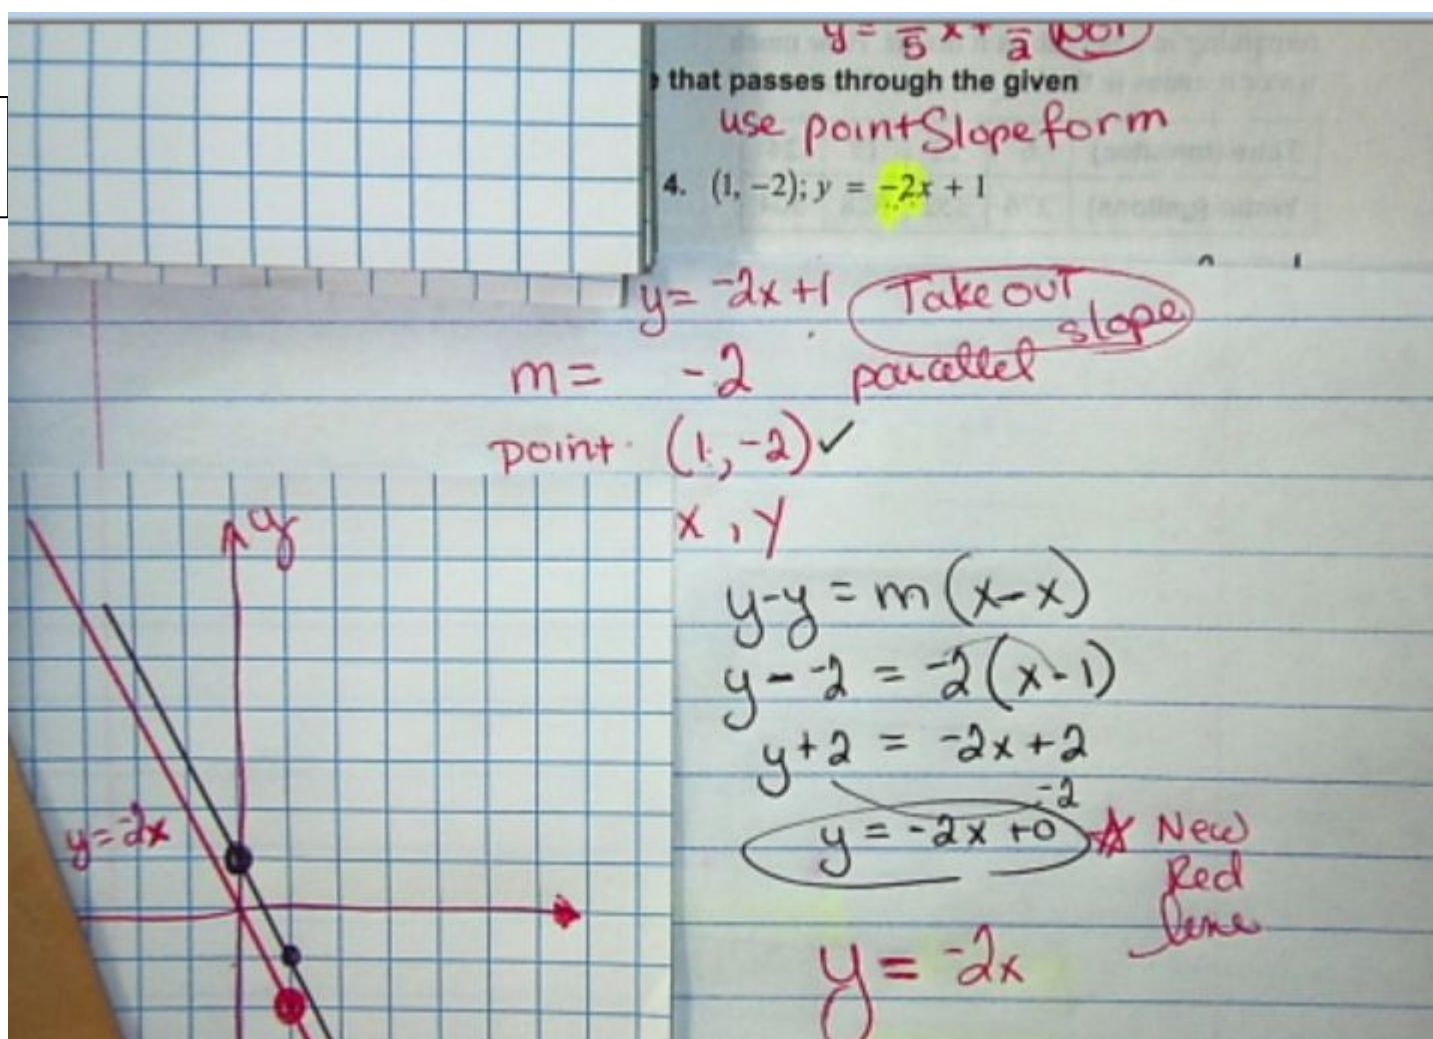 y = 5 x + 2
that passes through the given
use point Slope form
4. (1, −2); y = −2x + 1
y = -2x + 1 Take out slope
m = -2 parallel
point (1, -2) ✓
x , y
y
y - y = m (x - x)
y - -2 = -2 (x - 1)
y + 2 = -2x + 2
-2
y = -2x + 0 ☆ New
Red
line
y = -2x
y = -2x